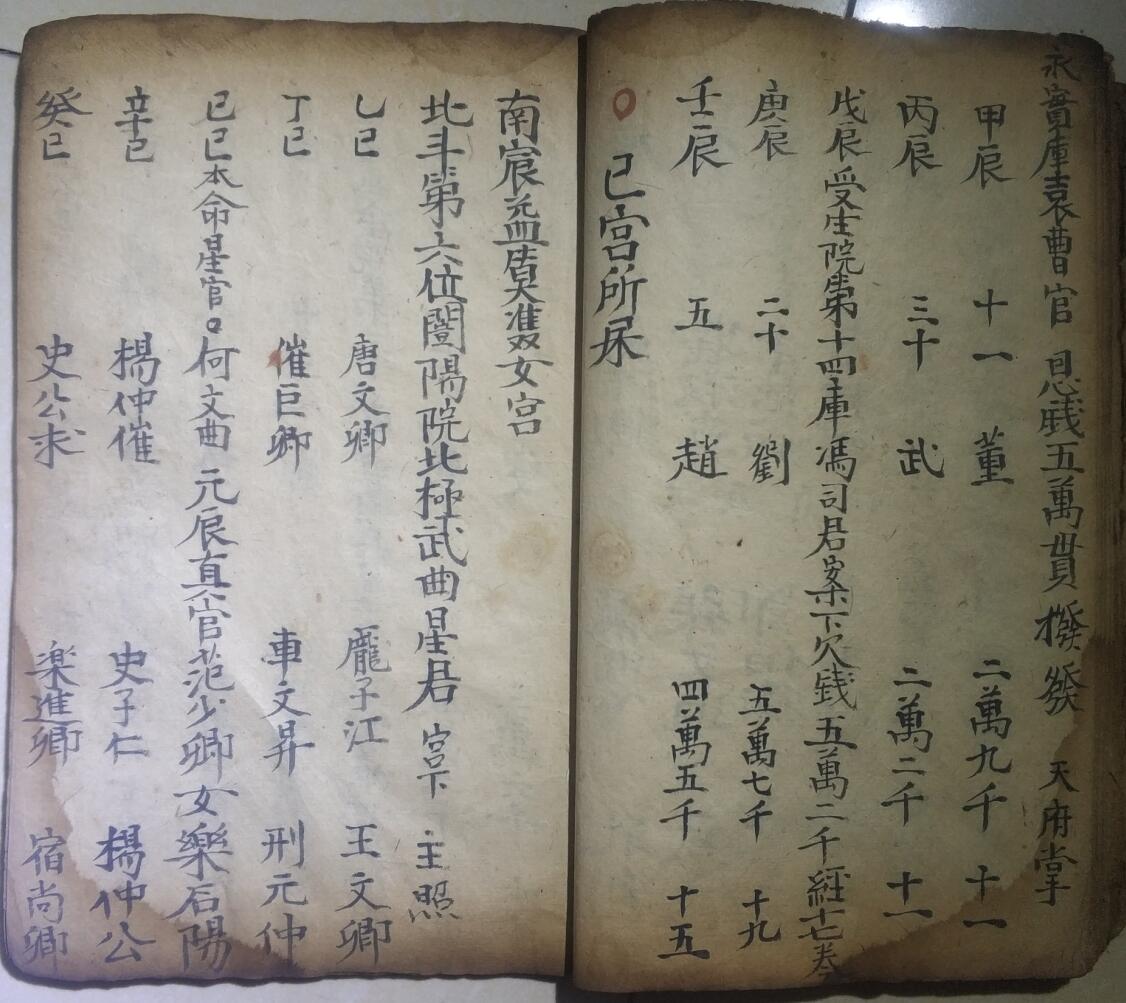 永實庫袁曹官 恩戋五萬貫 撥發 天府掌
甲辰 十一 董 二萬九千 十一
丙辰 三十 武 二萬二千 十一
戊辰受生院第十四庫馮司君案下欠戋五萬二千經十七卷
庚辰 二十 劉 五萬七千 十九
壬辰 五 趙 四萬五千 十五
〇 巳宮所屎
南宸益質雙女宮
北斗第六位闓陽院北極武曲星君 宮下 主照
乙巳 唐文卿 龐子江 王文卿
丁巳 催巨卿 車文昇 刑元仲
己巳本命星官 何文曲 元辰真官范少卿女樂石陽
辛巳 楊仲催 史子仁 楊仲公
癸巳 史公求 楽進卿 宿尚卿